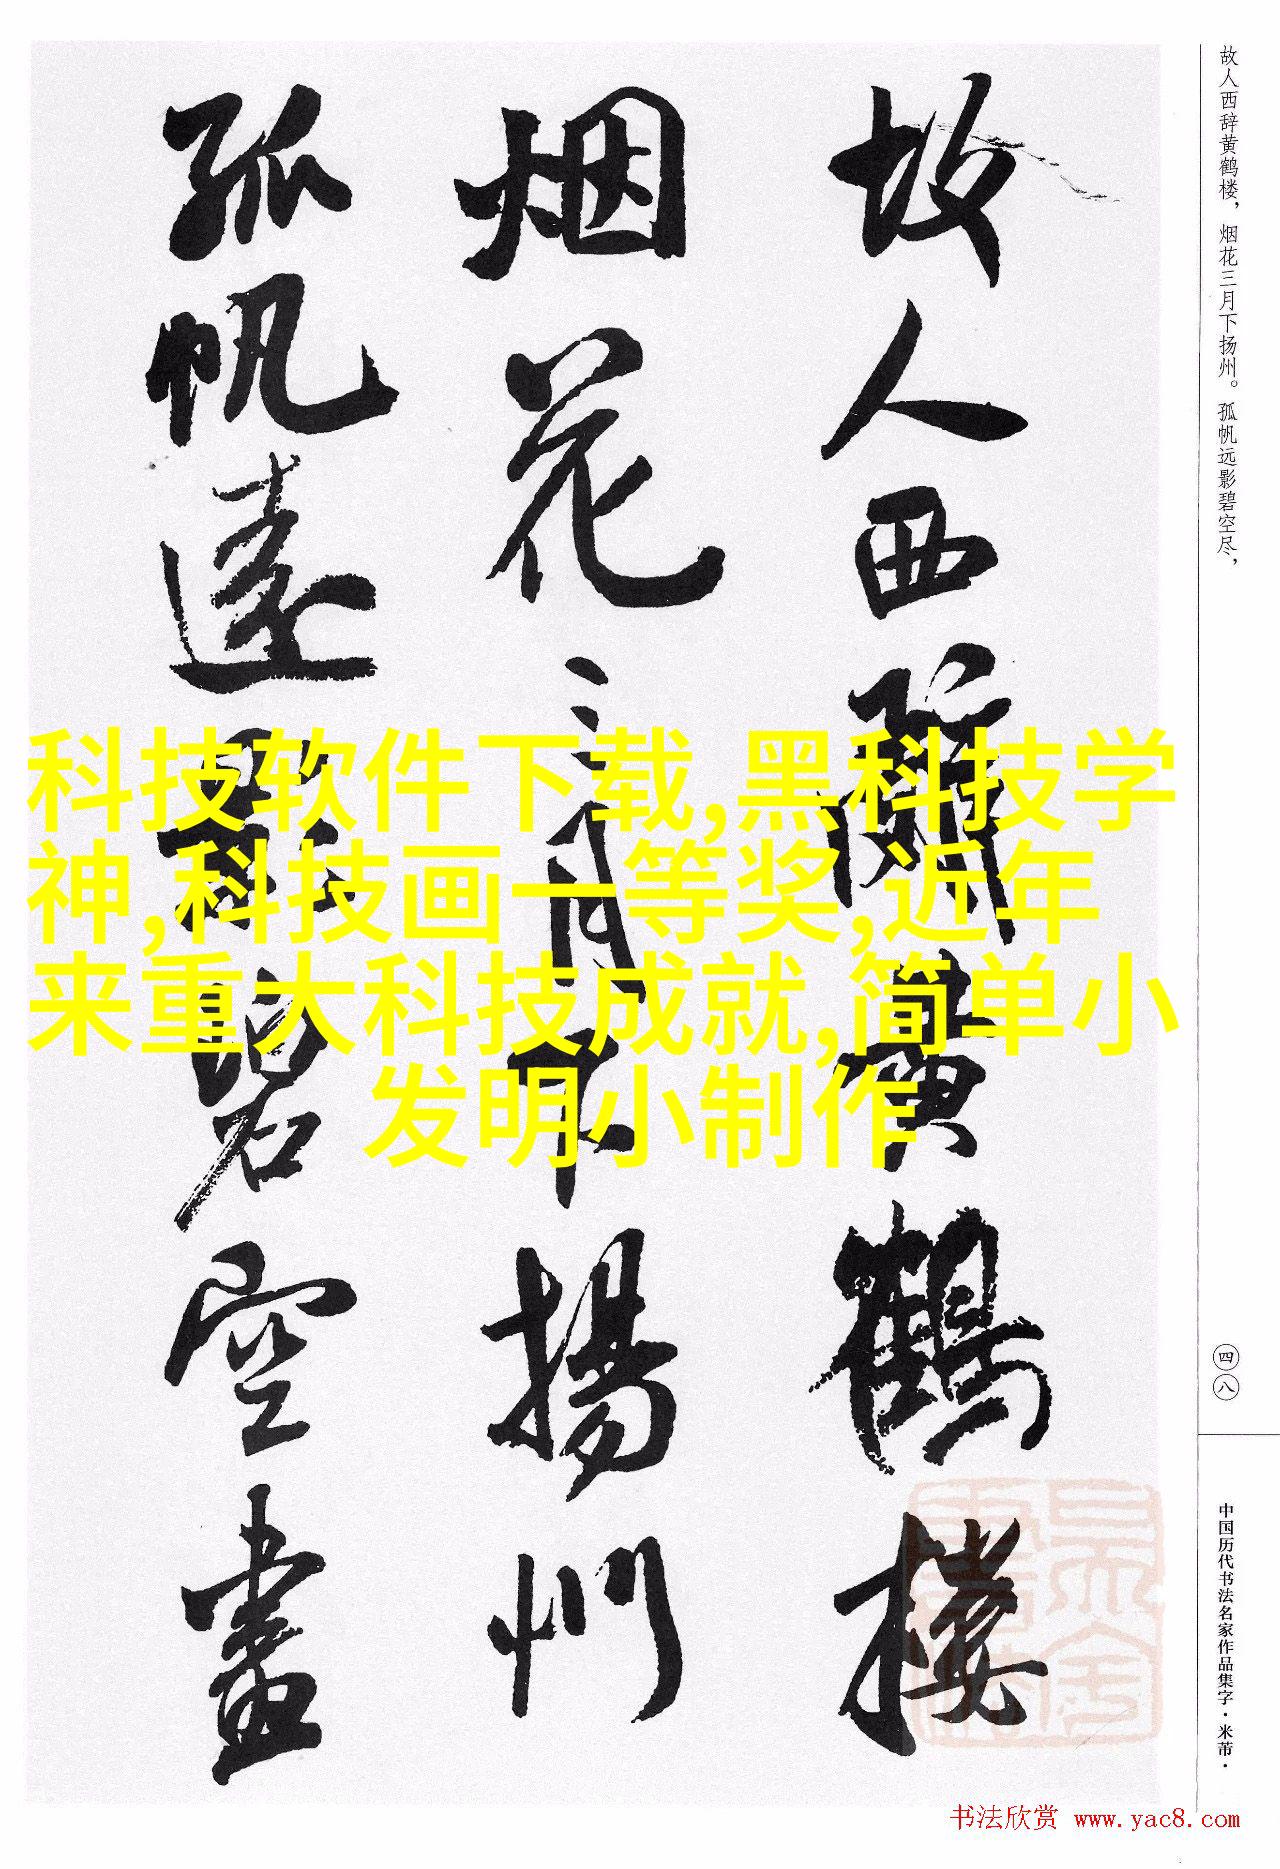 故人西辞黄鹤楼，烟花三月下扬州。孤帆远影碧空尽，
故人西辞黄鹤楼
烟花三月下揚州
孤帆遠影碧空盡
科技软件下载,黑科技学
神,科技画一等奖,近年
来重大科技成就,简单小
发明小制作
四八
中国历代书法名家作品集字·米芾·
书法欣赏 www.yac8.com